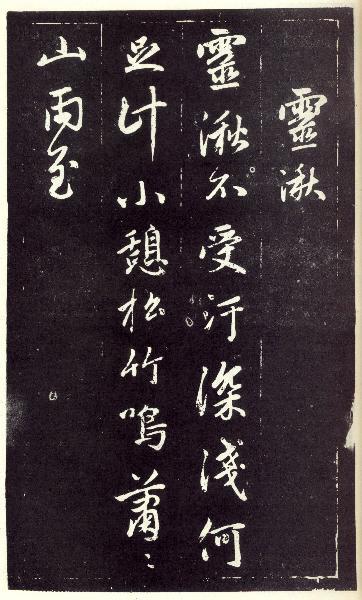 靈湫
靈湫不受汙深淺何
足計小憩松竹鳴蕭〻
山雨至